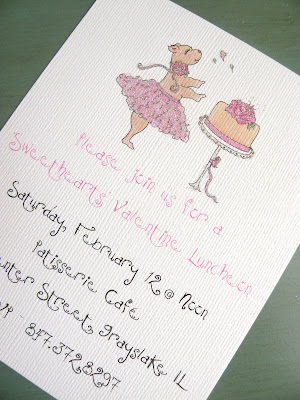 Please join us for a
Sweethearts' Valentine Luncheon
Saturday, February 12 @ Noon
Patisserie Café
Street, Grayslake, IL
847.372.8297